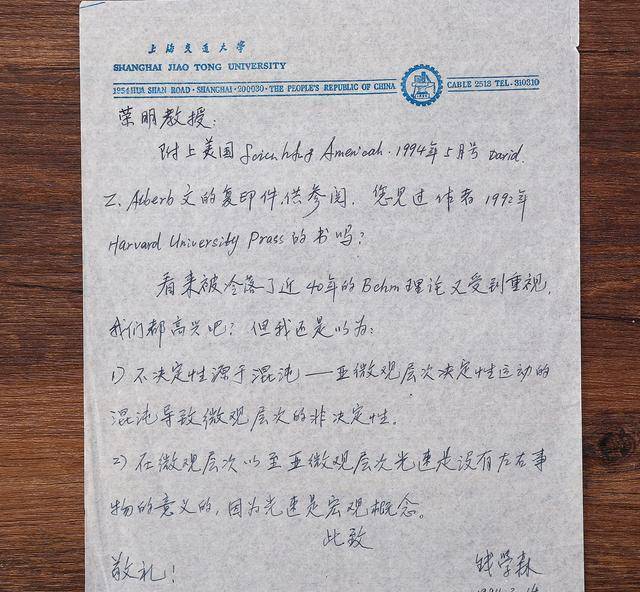 上海交通大学
SHANGHAI JIAO TONG UNIVERSITY
1954 HUA SHAN ROAD · SHANGHAI · 200030 · THE PEOPLE'S REPUBLIC OF CHINA CABLE 2513 TEL. 310310
荣明教授：
附上美国 Scientific American. 1994年5月号 David.
Z. Alberb 文的复印件，供参阅. 您见过作者1992年
Harvard University Prass 的书吗？
看来被冷落了近40年的Bohm理论又受到重视，
我们都高兴吧？但我还是以为：
1) 不决定性源于混沌——亚微观层次决定性运动的
混沌导致微观层次的非决定性。
2) 在微观层次以至亚微观层次光速是没有左右事
物的意义的，因为光速是宏观概念。
此致
敬礼！
钱学森